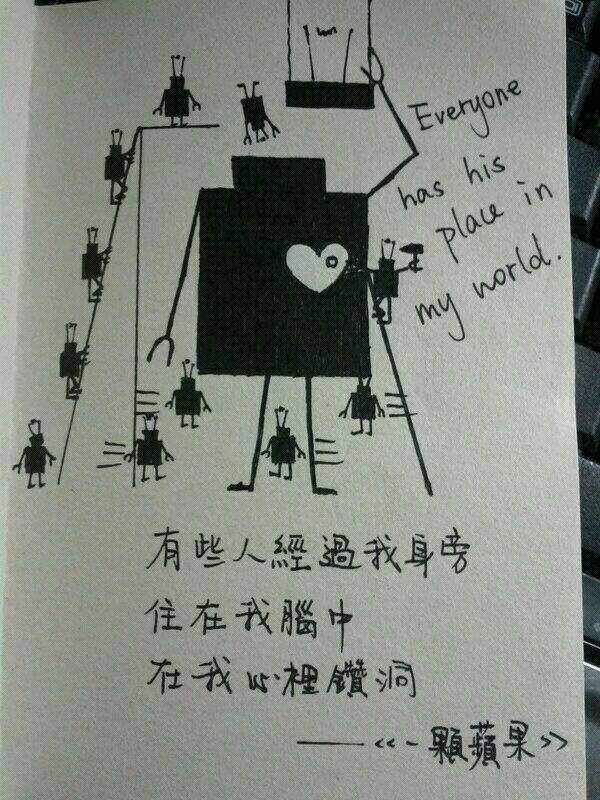 Everyone
has his
place in
my world.
有些人經過我身旁
住在我腦中
在我心裡鑽洞
——<<一顆蘋果>>